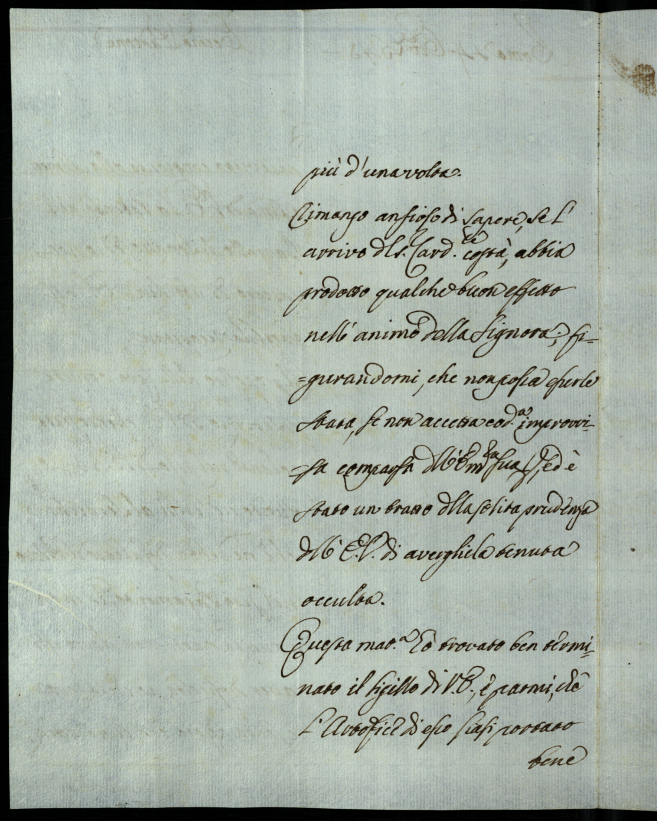 più d'una volta.
Rimango ansioso di sapere, se l'
arrivo del S. Card.le costà, abbia
prodotto qualche buon effetto
nell'animo della Signora, fi-
=gurandomi, che non possa esserle
stata, se non accetta cod.a improvi-
=sa comparsa dell'Em.za Sua, ed è
stato un tratto della solita prudenza
dell'E.V. di averghiela tenuta
occulta.
Questa mat.a hò trovato ben termi-
nato il sigillo di V.E., e parmi, che
l'Artefice di esso siasi portato
bene